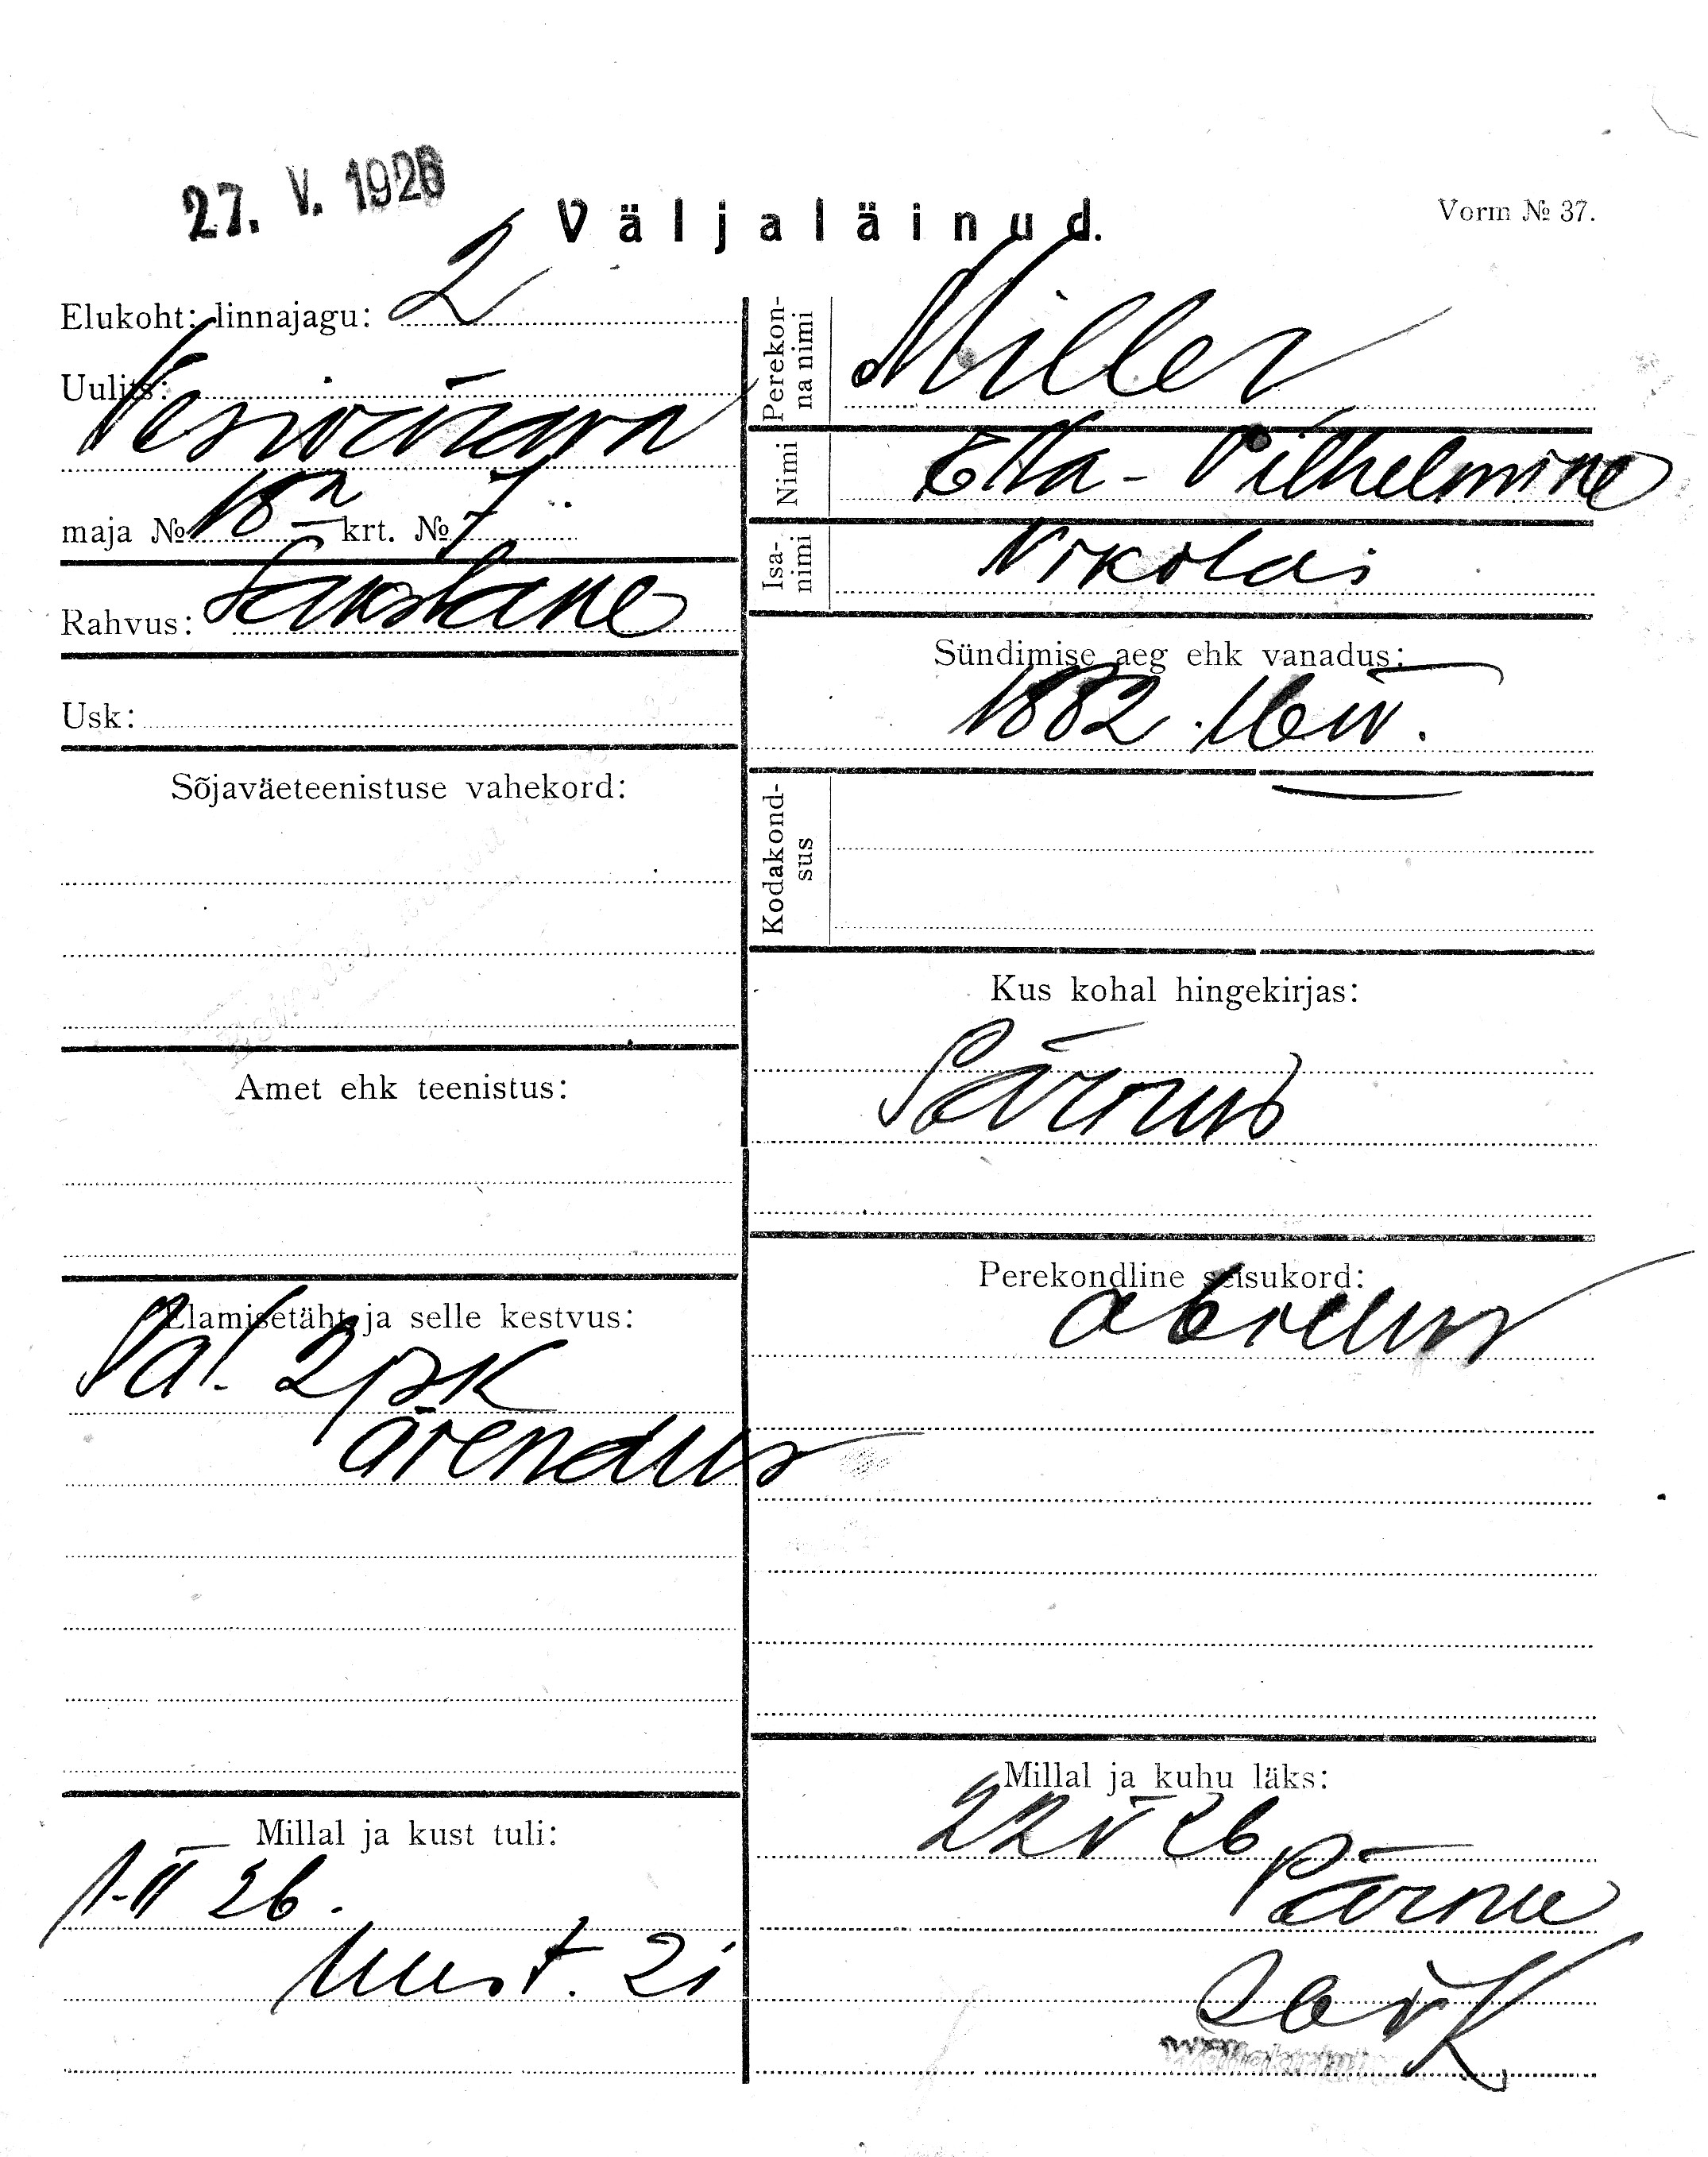 27. V. 1926
Väljaläinud.
Vorm № 37.
Elukoht: linnajagu: 2
Uulits:
Vesivärava
maja № 18a krt. № 7
Rahvus: Sakslane
Usk:
Sõjaväeteenistuse vahekord:
Amet ehk teenistus:
Elamisetäht ja selle kestvus:
2 jsk
Millal ja kust tuli:
1. II 26.
Must. 21
Perekon-
na nimi
Miller
Nimi
Etta - Vilhelmine
Isa-
nimi
Nikolai
Sündimise aeg ehk vanadus:
1882. 16 IV.
Kodakond-
sus
Kus kohal hingekirjas:
Pärnus
Perekondline seisukord:
abielus
Millal ja kuhu läks:
22 V 26
Pärnu